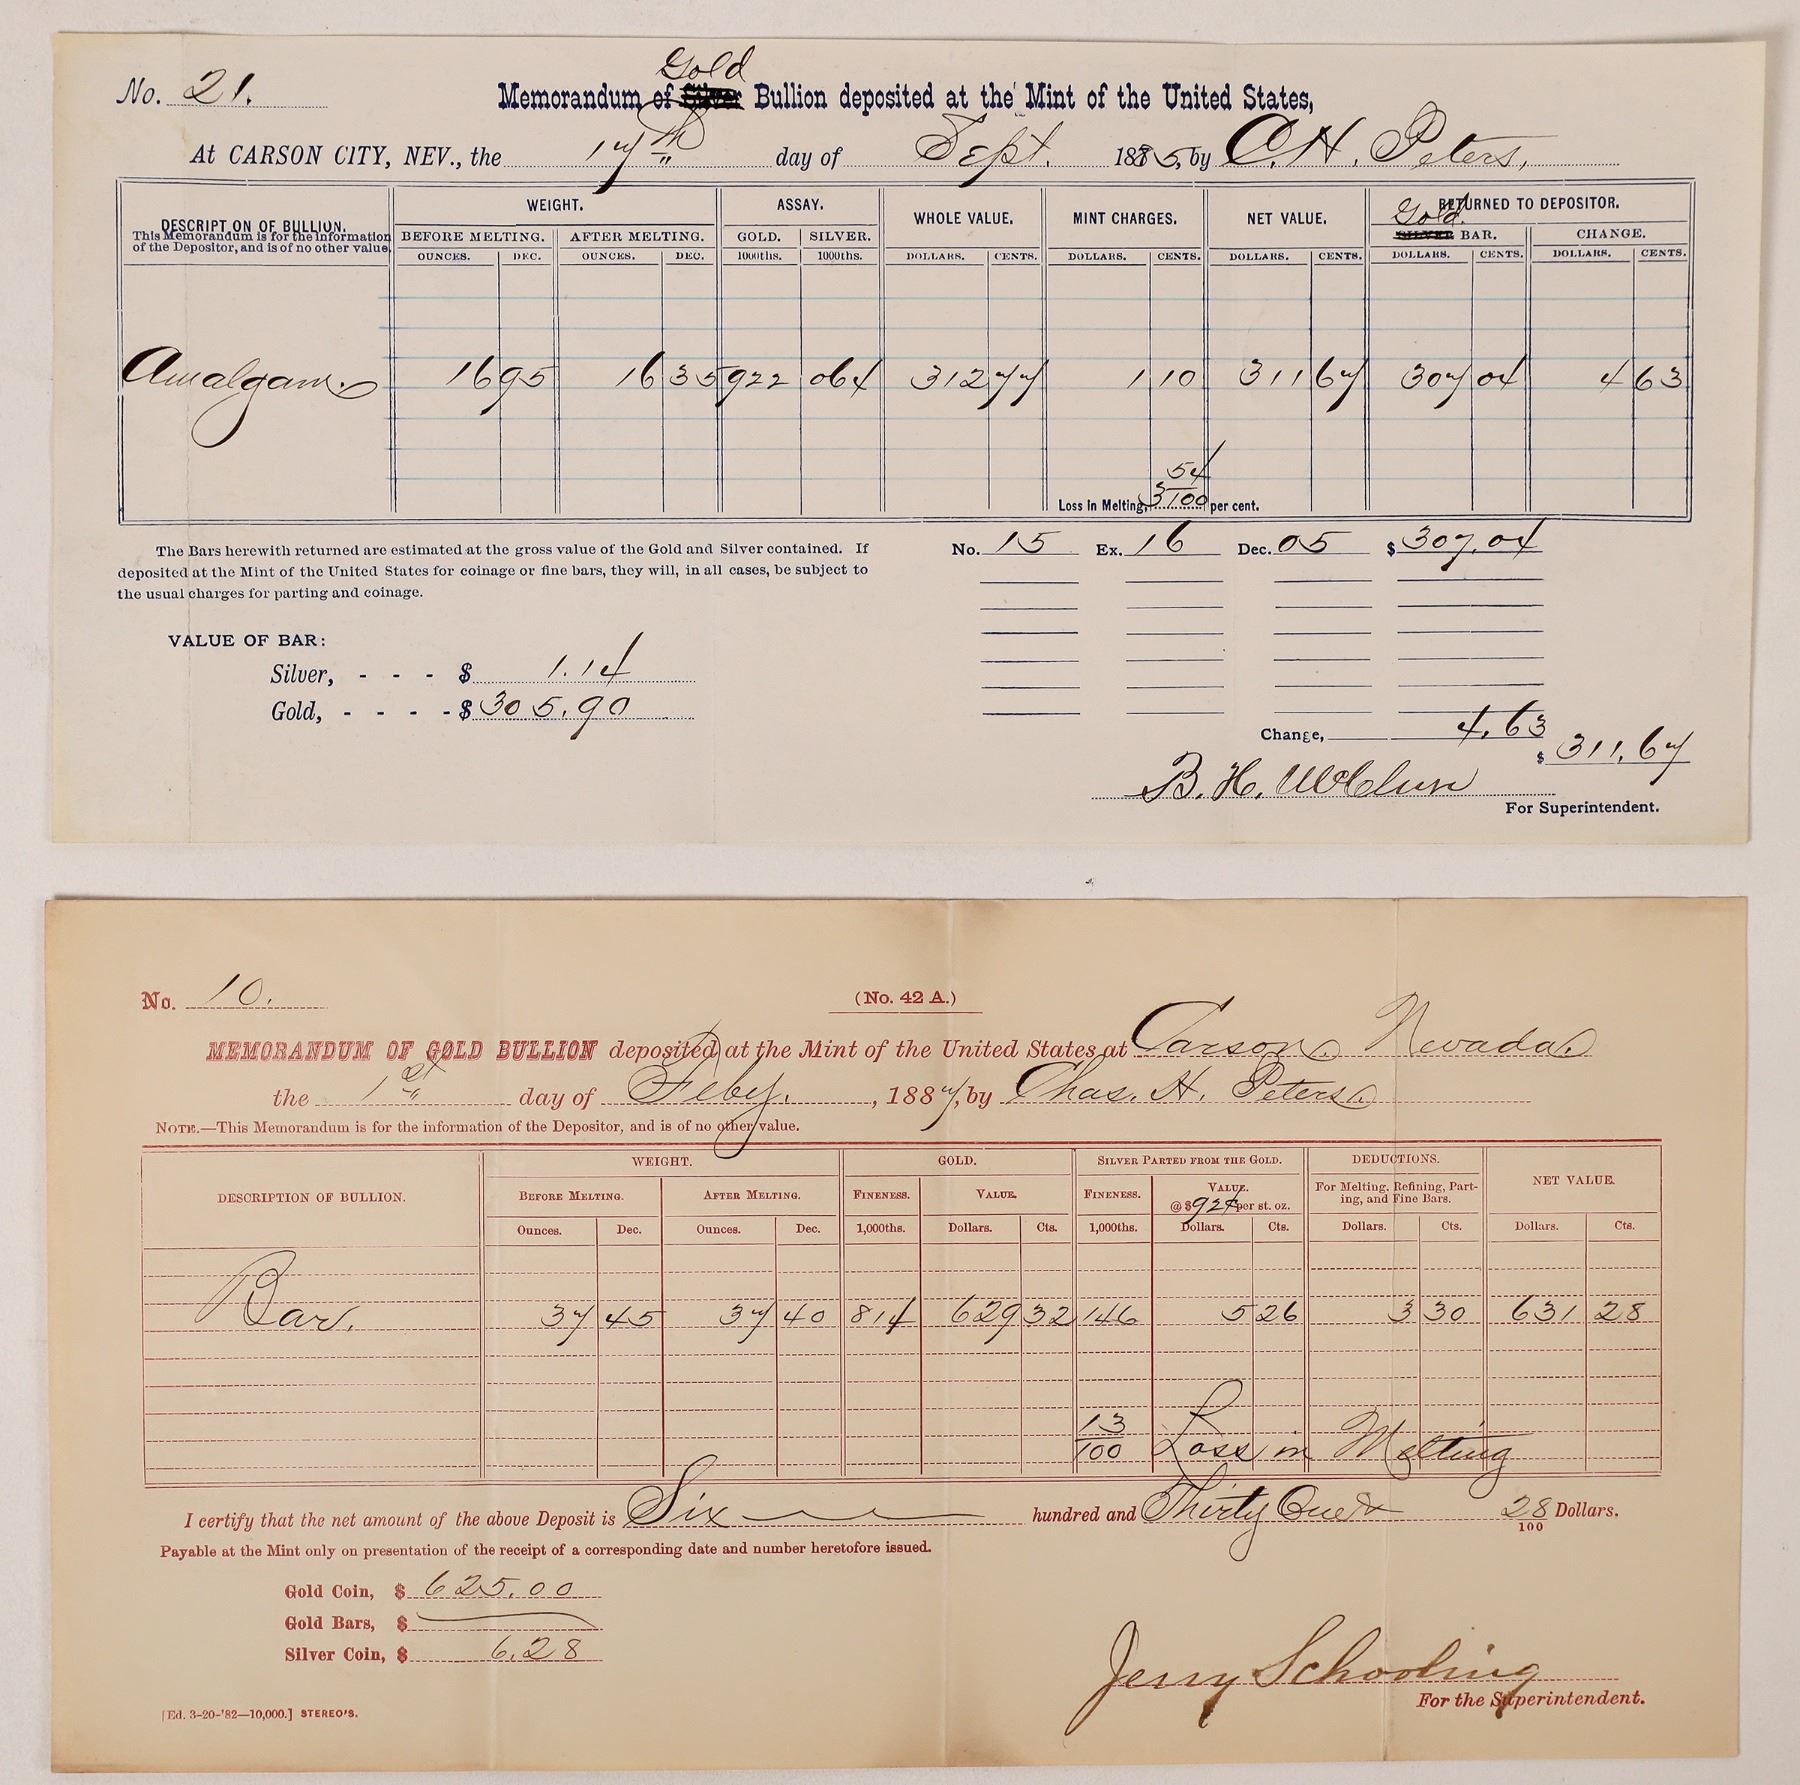 Gold
No. 21. Memorandum of Silver Bullion deposited at the Mint of the United States,
At CARSON CITY, NEV., the 17th day of Sept. 1885, by C. H. Peters,
DESCRIPTION OF BULLION. WEIGHT. ASSAY. WHOLE VALUE. MINT CHARGES. NET VALUE. RETURNED TO DEPOSITOR.
This Memorandum is for the information of the Depositor, and is of no other value.
BEFORE MELTING. AFTER MELTING. GOLD. SILVER. Gold SILVER BAR. CHANGE.
OUNCES. DEC. OUNCES. DEC. 1000ths. 1000ths. DOLLARS. CENTS. DOLLARS. CENTS. DOLLARS. CENTS. DOLLARS. CENTS. DOLLARS. CENTS.
Amalgam. 16 95 16 35 922 064 312 77 1 10 311 67 307 04 4 63
Loss in Melting, 3 54/100 per cent.
The Bars herewith returned are estimated at the gross value of the Gold and Silver contained. If
deposited at the Mint of the United States for coinage or fine bars, they will, in all cases, be subject to
the usual charges for parting and coinage.
No. 15 Ex. 16 Dec. 05 $ 307.04
VALUE OF BAR:
Silver, - - - $ 1.14
Gold, - - - - $ 305.90
Change, 4.63
$ 311.67
B. H.
For Superintendent.
No. 10. (No. 42 A.)
MEMORANDUM OF GOLD BULLION deposited at the Mint of the United States at Carson Nevada.
the 1st day of Feby. , 1887, by Chas. H. Peters.
NOTE.—This Memorandum is for the information of the Depositor, and is of no other value.
DESCRIPTION OF BULLION. WEIGHT. GOLD. SILVER PARTED FROM THE GOLD. DEDUCTIONS. NET VALUE.
BEFORE MELTING. AFTER MELTING. FINENESS. VALUE. FINENESS. VALUE. @ $ 92¢ per st. oz. For Melting, Refining, Parting, and Fine Bars.
Ounces. Dec. Ounces. Dec. 1,000ths. Dollars. Cts. 1,000ths. Dollars. Cts. Dollars. Cts. Dollars. Cts.
Bar. 37 45 37 40 814 629 32 146 5 26 3 30 631 28
13/100 Loss in Melting
I certify that the net amount of the above Deposit is Six hundred and Thirty One & 28/100 Dollars.
Payable at the Mint only on presentation of the receipt of a corresponding date and number heretofore issued.
Gold Coin, $ 625.00
Gold Bars, $
Silver Coin, $ 6.28
Jerry Schooling
For the Superintendent.
[Ed. 3-20-'82—10,000.] STEREO'S.